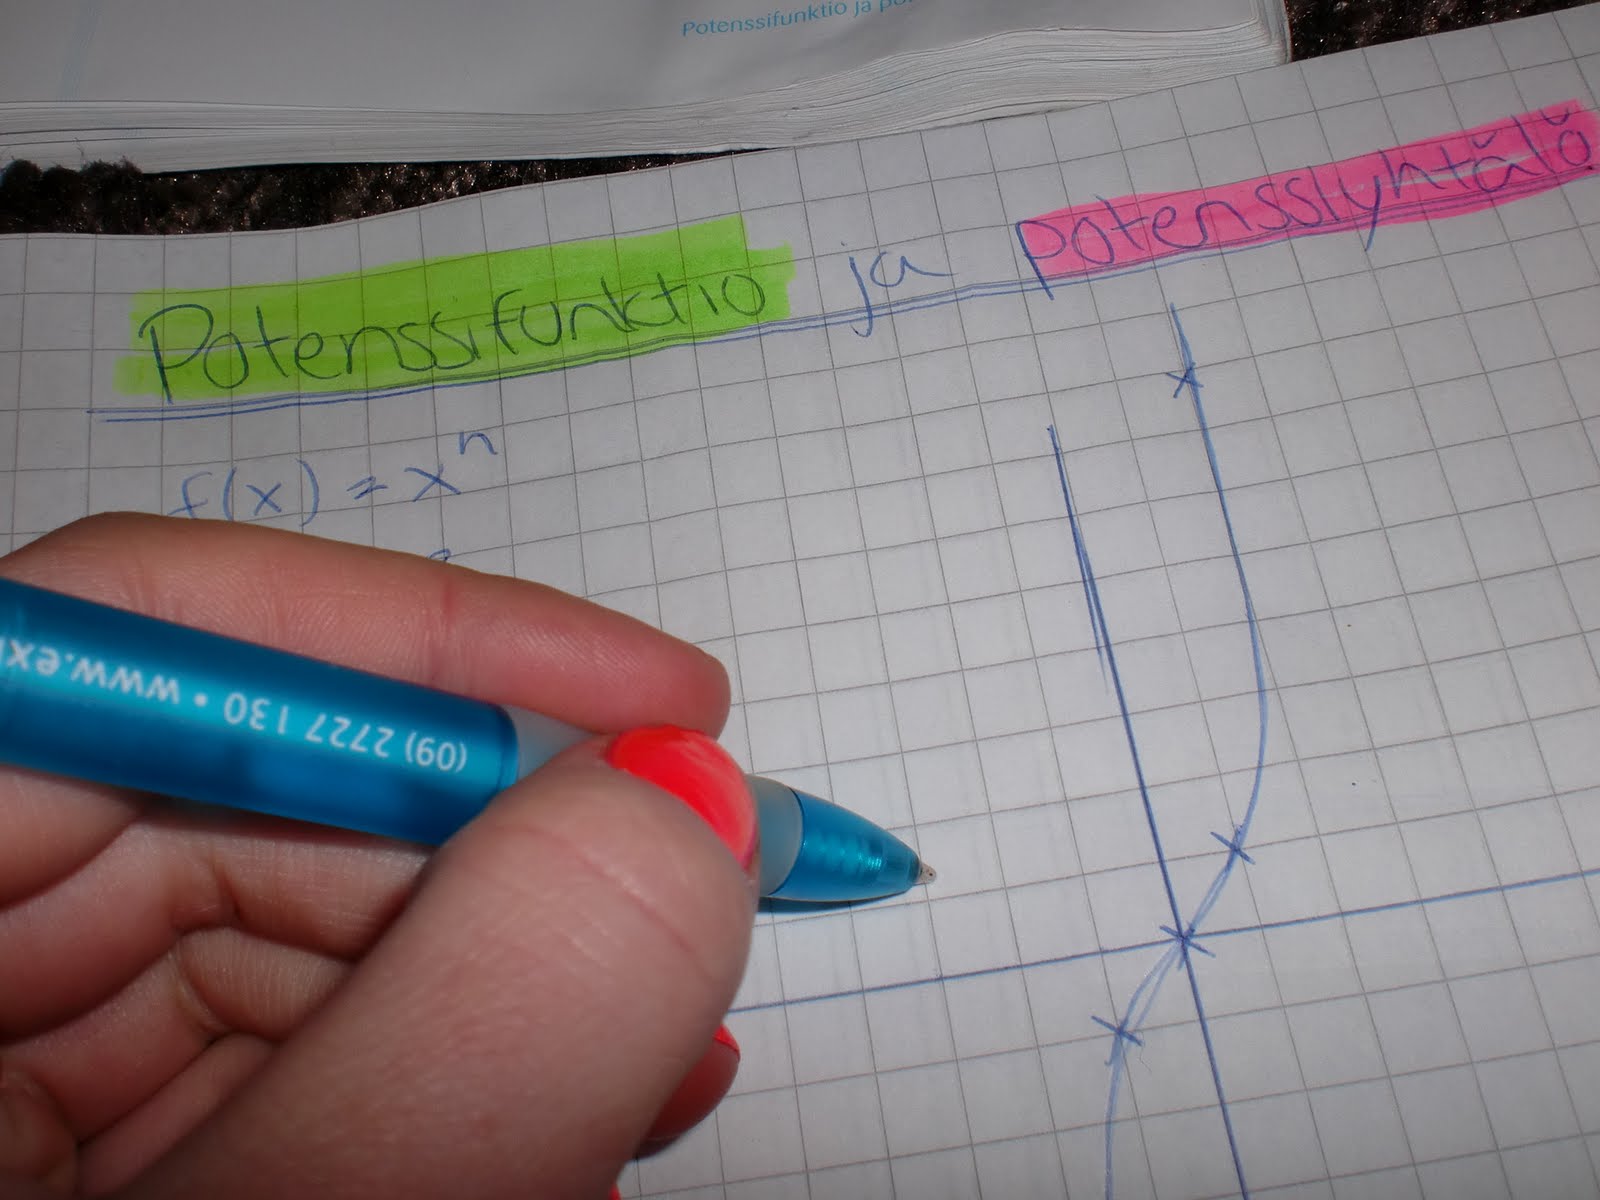 Potenssifunktio ja
Potenssifunktio ja potenssiyhtälö
f(x) = xⁿ
(09) 2727 130 • www.ex